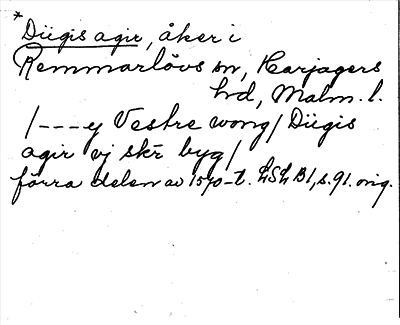 * Diigis agir, åker i
Remmarlövs sn, Harjagers
hd, Malm. l.
/---y Vestre wong/ Diigis
agir vj skr byg/
förra delen av 1570-t. LSL B1, s. 91. orig.